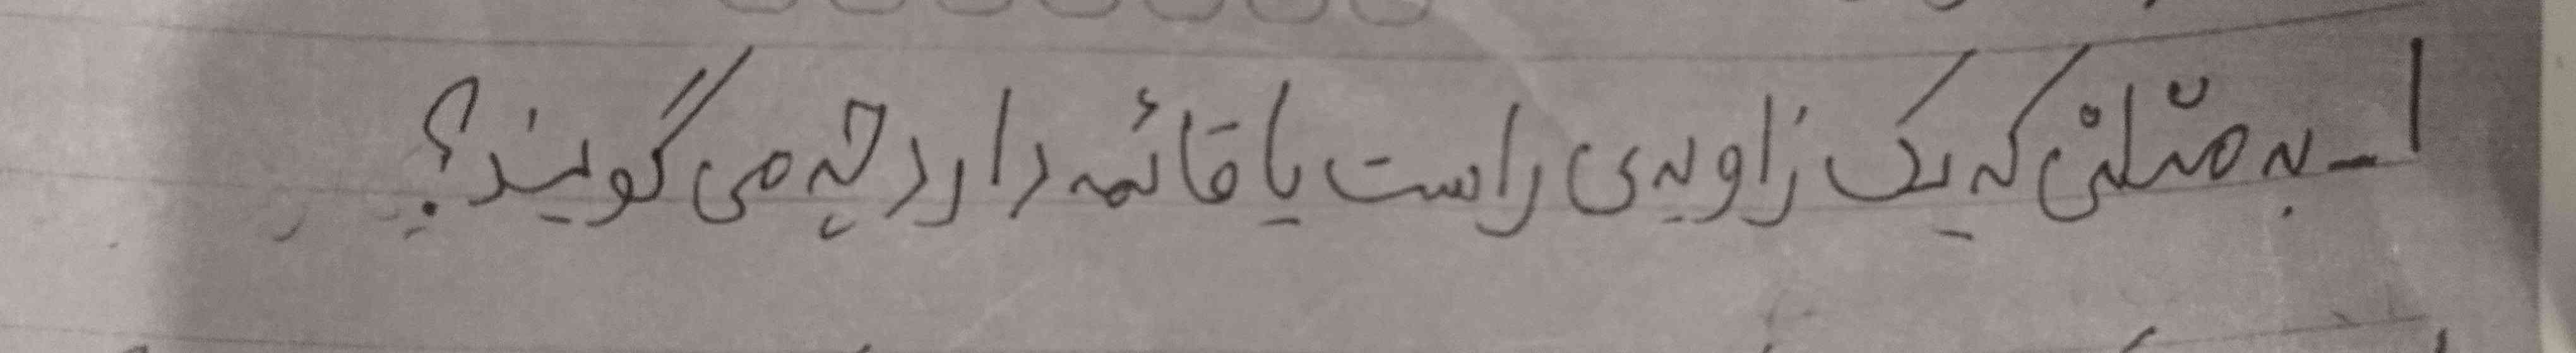 ۱- به مثلثی که یک زاویه‌ی راست یا قائمه دارد چه می گویند؟